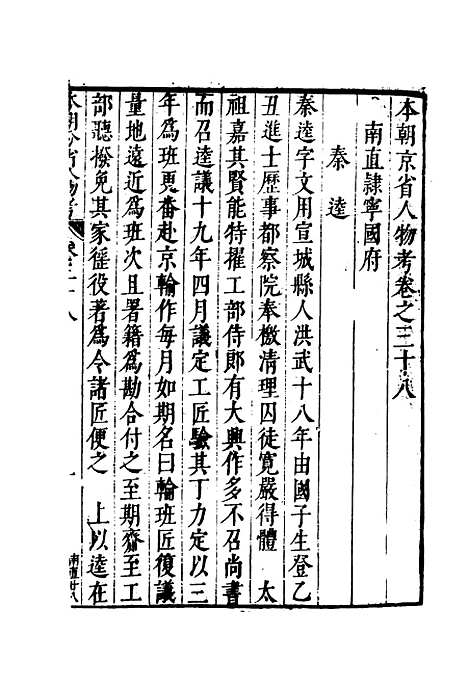 本朝京省人物考卷之三十八
南直隸寧國府
秦逵
秦逵字文用宣城縣人洪武十八年由國子生登乙
丑進士歷事都察院奉檄清理囚徒寬嚴得體　太
祖嘉其賢能特擢工部侍郎有大興作多不召尚書
而召逵議十九年四月議定工匠驗其丁力定以三
年爲班更番赴京輪作每月如期名曰輪班匠復議
量地遠近爲班次且署籍爲勘合付之至期齎至工
部聽撥免其家徭役著爲令諸匠便之　上以逵在
本朝分省人物考
卷三十八
一
南直廿八